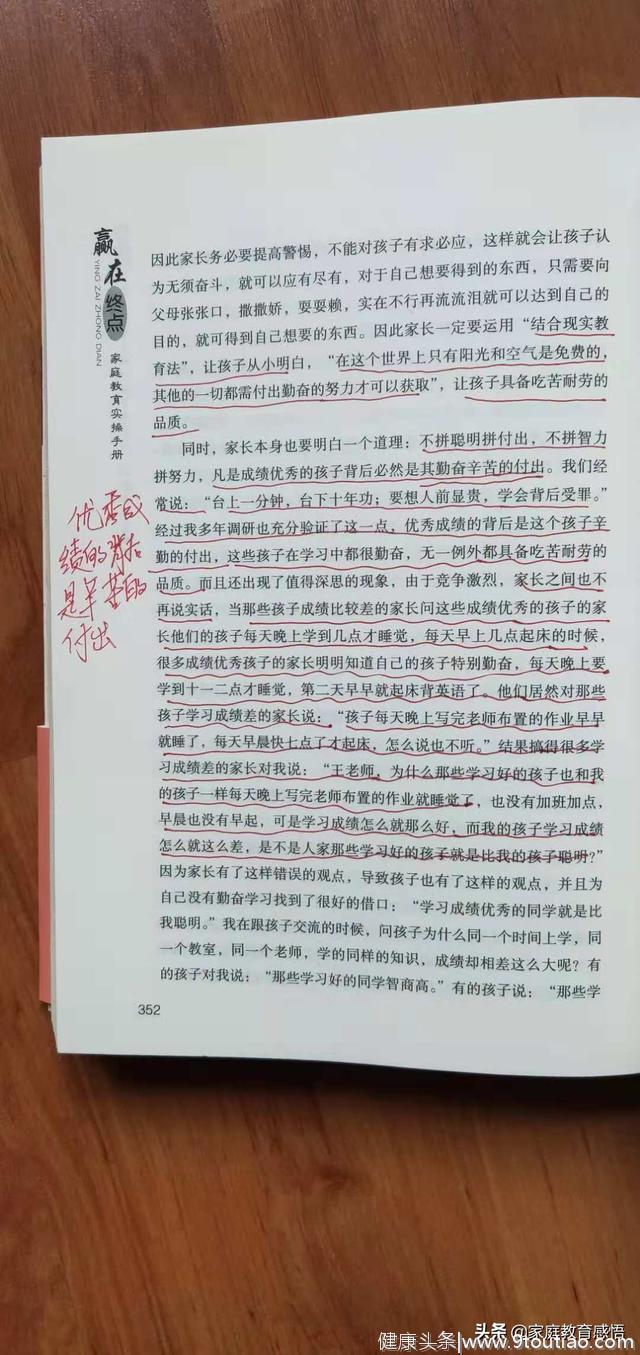 赢在终点
YING ZAI ZHONG DIAN
家庭教育实操手册
因此家长务必要提高警惕，不能对孩子有求必应，这样就会让孩子认
为无须奋斗，就可以应有尽有，对于自己想要得到的东西，只需要向
父母张张口，撒撒娇，耍耍赖，实在不行再流流泪就可以达到自己的
目的，就可得到自己想要的东西。因此家长一定要运用“结合现实教
育法”，让孩子从小明白，“在这个世界上只有阳光和空气是免费的，
其他的一切都需付出勤奋的努力才可以获取”，让孩子具备吃苦耐劳的
品质。
同时，家长本身也要明白一个道理：不拼聪明拼付出，不拼智力
拼努力，凡是成绩优秀的孩子背后必然是其勤奋辛苦的付出。我们经
常说：“台上一分钟，台下十年功；要想人前显贵，学会背后受罪。”
经过我多年调研也充分验证了这一点，优秀成绩的背后是这个孩子辛
勤的付出，这些孩子在学习中都很勤奋，无一例外都具备吃苦耐劳的
品质。而且还出现了值得深思的现象，由于竞争激烈，家长之间也不
再说实话，当那些孩子成绩比较差的家长问这些成绩优秀的孩子的家
长他们的孩子每天晚上学到几点才睡觉，每天早上几点起床的时候，
很多成绩优秀孩子的家长明明知道自己的孩子特别勤奋，每天晚上要
学到十一二点才睡觉，第二天早早就起床背英语了。他们居然对那些
孩子学习成绩差的家长说：“孩子每天晚上写完老师布置的作业早早
就睡了，每天早晨快七点了才起床，怎么说也不听。”结果搞得很多学
习成绩差的家长对我说：“王老师，为什么那些学习好的孩子也和我
的孩子一样每天晚上写完老师布置的作业就睡觉了，也没有加班加点，
早晨也没有早起，可是学习成绩怎么就那么好，而我的孩子学习成绩
怎么就这么差，是不是人家那些学习好的孩子就是比我的孩子聪明？”
因为家长有了这样错误的观点，导致孩子也有了这样的观点，并且为
自己没有勤奋学习找到了很好的借口：“学习成绩优秀的同学就是比
我聪明。”我在跟孩子交流的时候，问孩子为什么同一个时间上学，同
一个教室，同一个老师，学的同样的知识，成绩却相差这么大呢？有
的孩子对我说：“那些学习好的同学智商高。”有的孩子说：“那些学
352
优秀成
绩的背后
是辛苦的
付出
头条 @家庭教育感悟
健康头条|www.9toutiao.com